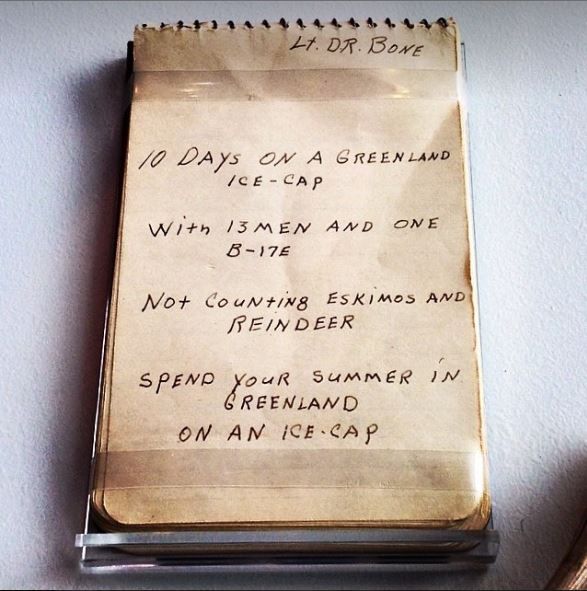 Lt. DR. BONE
10 DAYS ON A GREENLAND
ICE-CAP
With 13 MEN AND ONE
B-17E
Not Counting ESKIMOS AND
REINDEER
SPEND YOUR SUMMER IN
GREENLAND
ON AN ICE-CAP